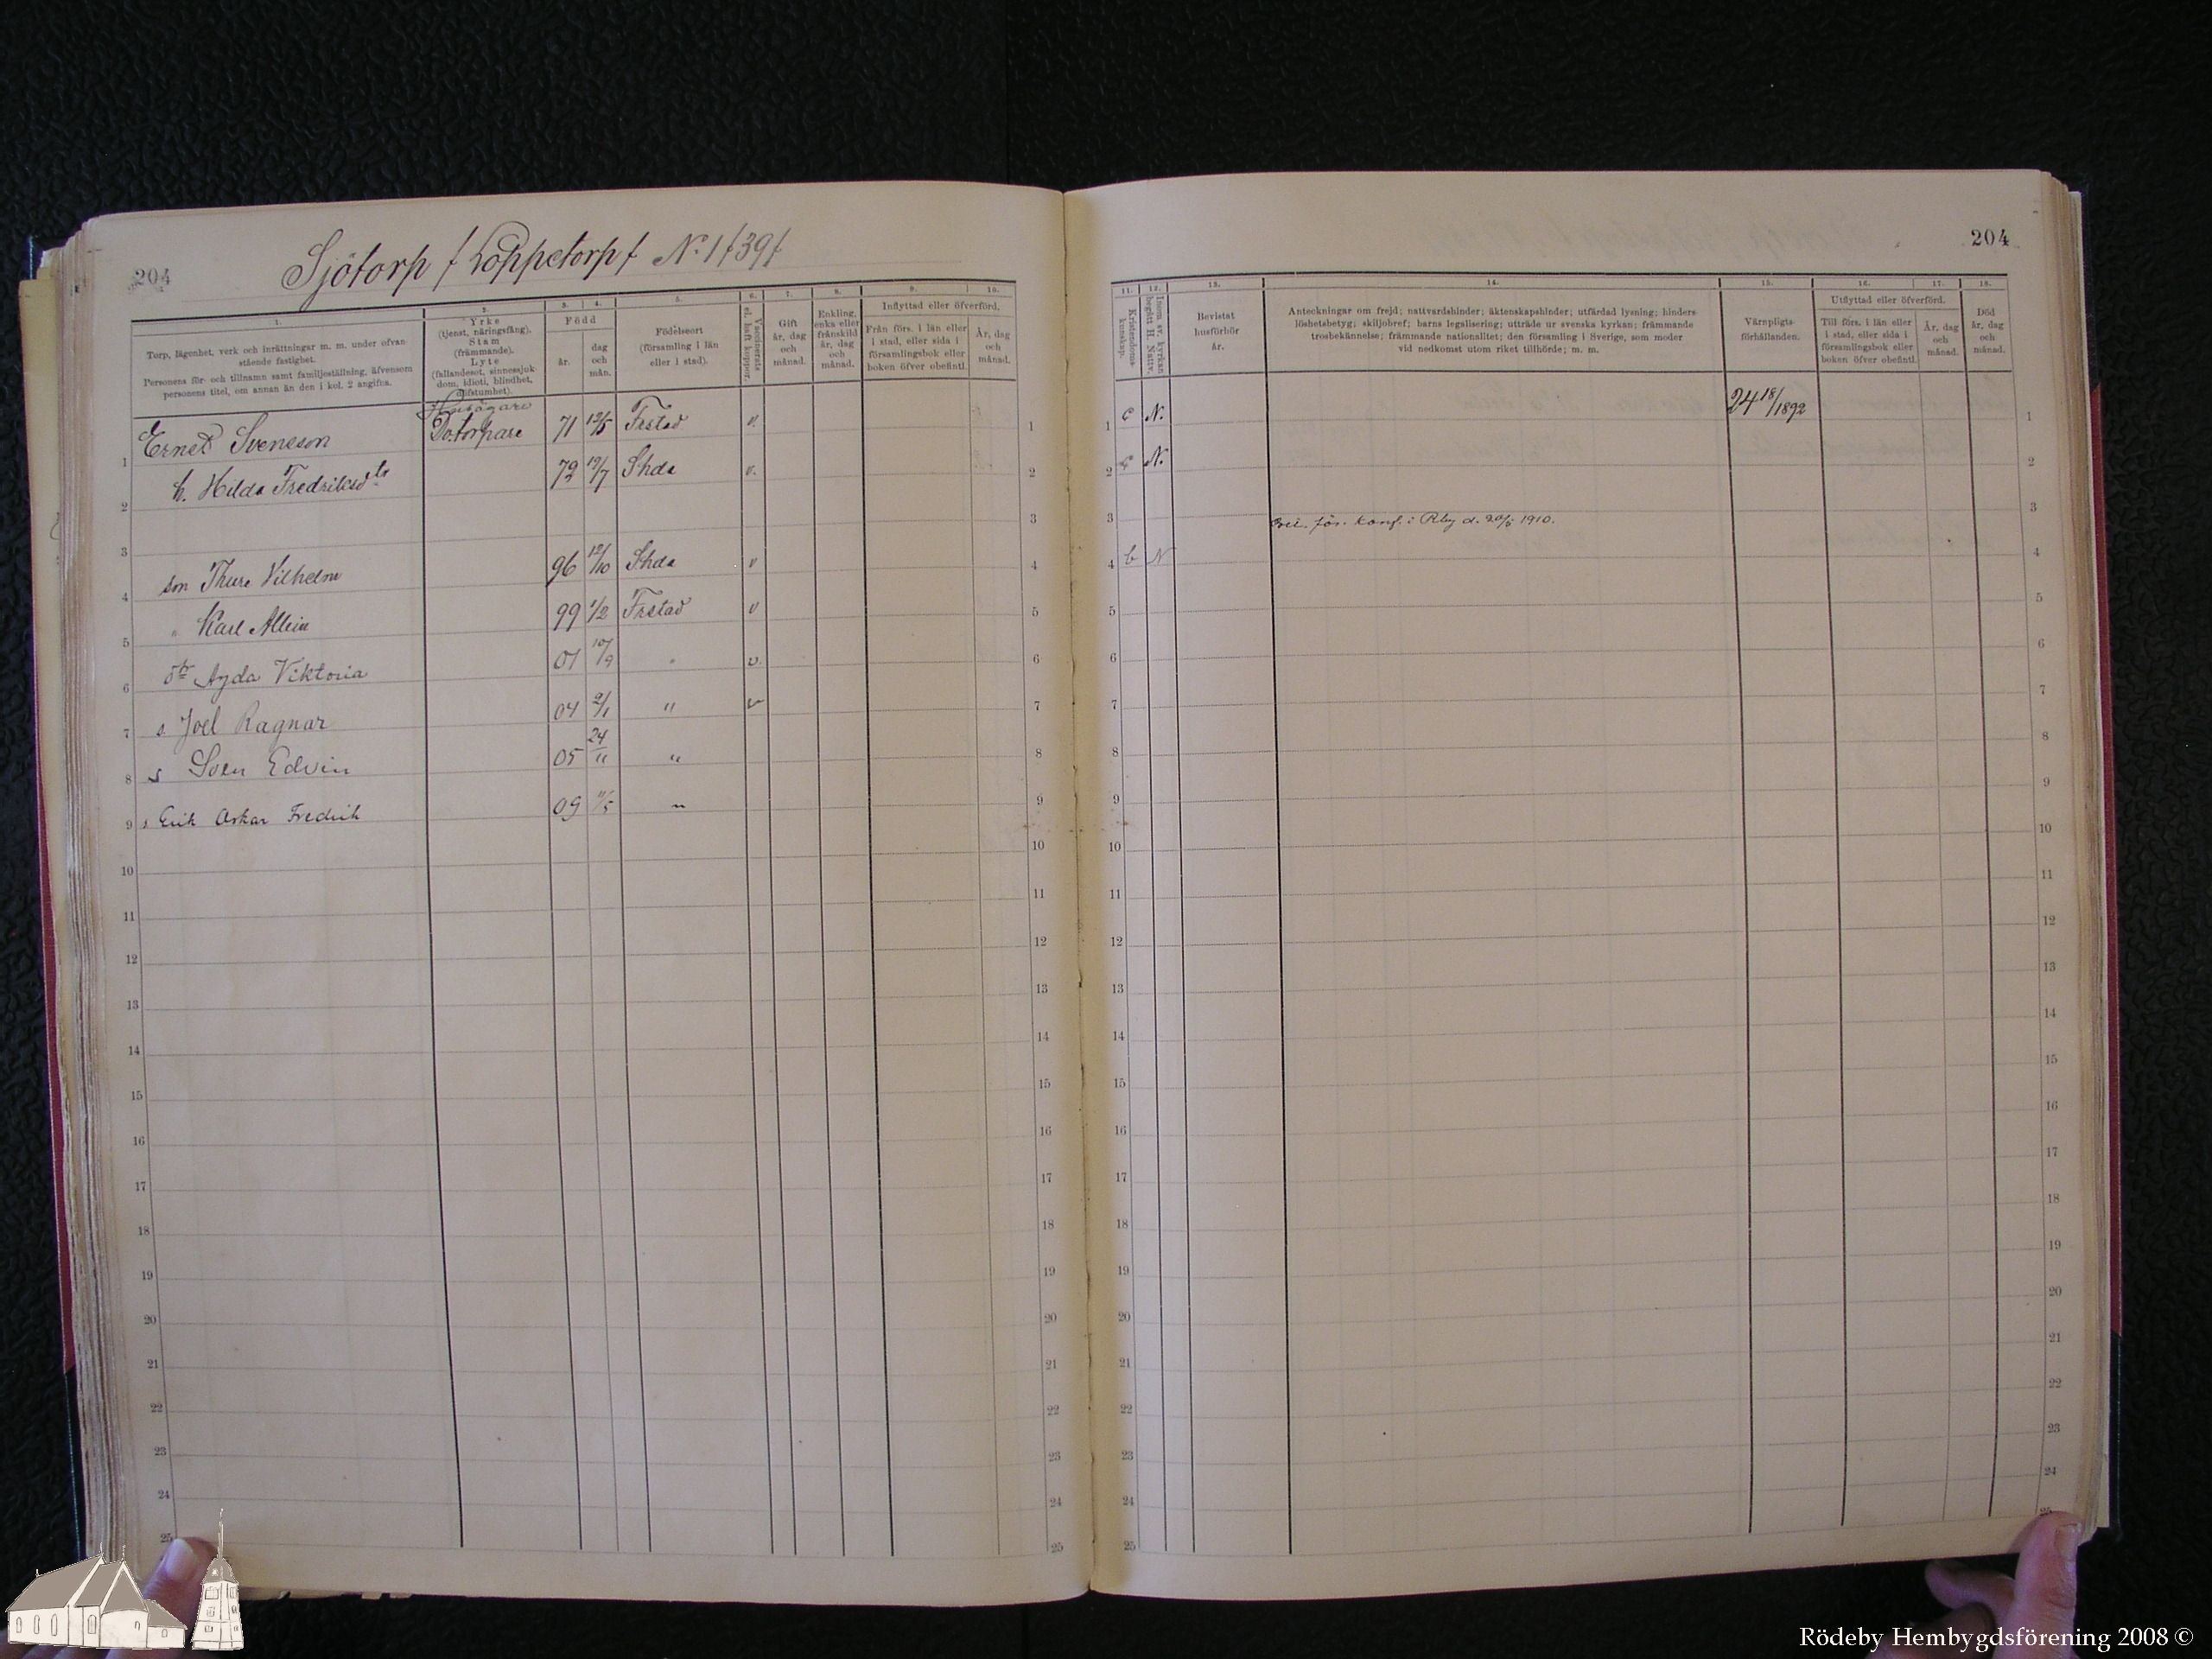 204
Sjötorp f Loppetorp f No 1 f 39 f
1.
2.
3.
4.
5.
6.
7.
8.
9.
10.
Torp, lägenhet, verk och inrättningar m. m. under ofvan-
stående fastighet.
Personens för- och tillnamn samt familjeställning, äfvensom
personens titel, om annan än den i kol. 2 angifna.
Yrke
(tjenst, näringsfång).
Stam
(främmande).
Lyte
(fallandesot, sinnessjuk-
dom, idioti, blindhet,
döfstumhet).
Född
år.
dag
och
mån.
Födelseort
(församling i län
eller i stad).
Vaccinerats
el. haft koppor.
Gift
år, dag
och
månad.
Enkling,
enka eller
frånskild
år, dag
och
månad.
Inflyttad eller öfverförd.
Från förs. i län eller
i stad, eller sida i
församlingsbok eller
boken öfver obefintl.
År, dag
och
månad.
Husägare
1 Ernst Svensson Do. torpare 71 12/5 Frstad v. 1
2 h. Hilda Fredriksdtr 72 19/7 Shda v. 2
3 3
4 son Thure Vilhelm 96 12/10 Shda v 4
5 " Karl Albin 99 1/2 Frstad v 5
6 dtr Agda Viktoria 01 10/9 " v. 6
7 s Joel Ragnar 04 2/1 " v 7
8 s Sven Edvin 05 24/11 " 8
9 s Erik Oskar Fredrik 09 11/5 " 9
10 10
11 11
12 12
13 13
14 14
15 15
16 16
17 17
18 18
19 19
20 20
21 21
22 22
23 23
24 24
25 25
204
11.
12.
13.
14.
15.
16.
17.
18.
Kristendoms-
kunskap.
Inom sv. kyrkan
begått H. Nattv.
Bevistat
husförhör
år.
Anteckningar om frejd; nattvardshinder; äktenskapshinder; utfärdad lysning; hinders-
löshetsbetyg; skiljobref; barns legalisering; utträde ur svenska kyrkan; främmande
trosbekännelse; främmande nationalitet; den församling i Sverige, som moder
vid nedkomst utom riket tillhörde; m. m.
Värnpligts-
förhållanden.
Utflyttad eller öfverförd.
Till förs. i län eller
i stad, eller sida i
församlingsbok eller
boken öfver obefintl.
År, dag
och
månad.
Död
år, dag
och
månad.
1 c N. 24 18/1892 1
2 c N. 2
3 för. konf. i Rby d. 1910. 3
4 b N 4
5 5
6 6
7 7
8 8
9 9
10 10
11 11
12 12
13 13
14 14
15 15
16 16
17 17
18 18
19 19
20 20
21 21
22 22
23 23
24 24
25 25
Rödeby Hembygdsförening 2008 ©